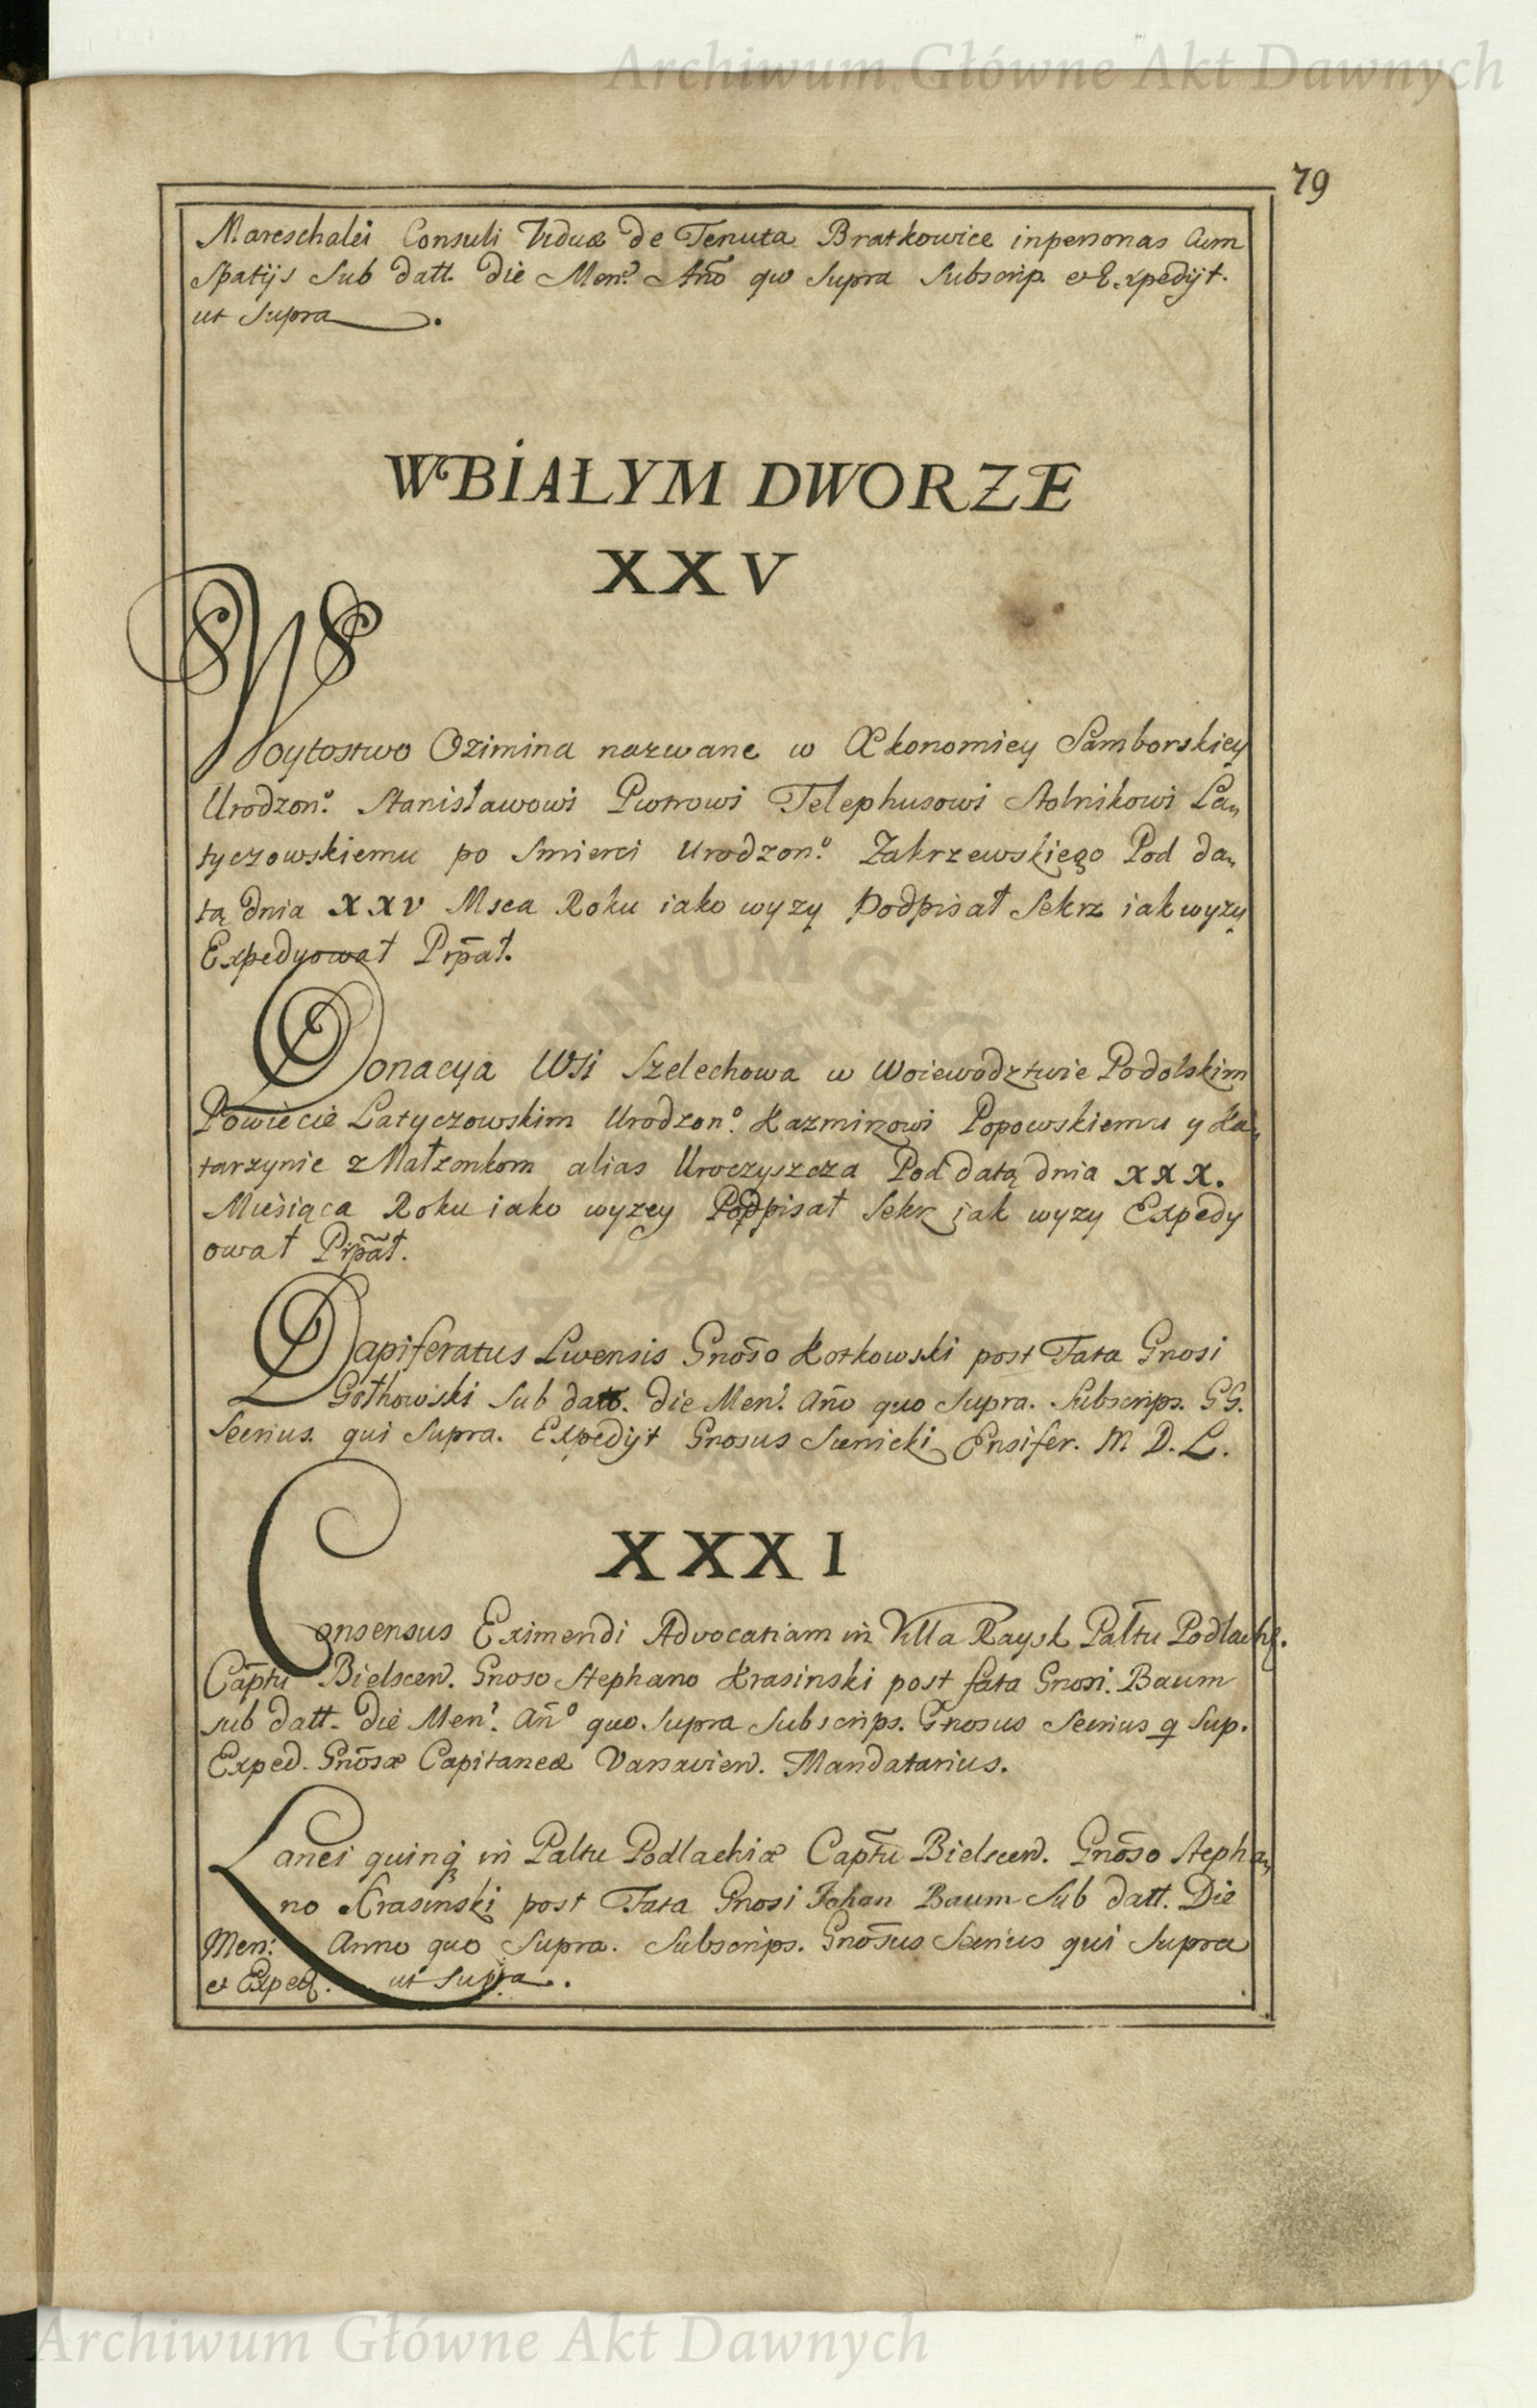 Archiwum Główne Akt Dawnych
79
Mareschalei Consuli Viduæ de Tenuta Bratkowice inpersonas Cum
Spatijs Sub datt. Die Men? Año quo Supra Subscrip. et Expedijt.
ut Supra.
WBIAŁYM DWORZE
XXV
Woytostwo Ozimina nazwane w Œkonomiey Samborskiey
Urodzon.º Stanisławowi Piotrowi Telephusowi Stolnikowi La„
tyczowskiemu po Smierci Urodzon.º Zakrzewskiego Pod da„
tą dnia XXV Msca Roku iako wyzy Podpisał Sekrz iak wyzy
Expedyował Prpał.
Donacya Wsi Szelechowa w Woiewodztwie Podolskim
Powiecie Latyczowskim Urodzon.º Kazmirowi Popowskiemu y Ka„
tarzynie z Małzonkom alias Uroczyszcza Pod datą dnia XXX.
Miesiąca Roku iako wyzey Podpisał Sekr iak wyzy Expedy
ował Prpał.
Dapiferatus Livensis Gnoso Kotkowski post Fata Gnosi
Gothowski Sub datt. Die Men? Año quo Supra. Subscrips. GG.
Secrius. qui Supra. Expedijt Gnosus Sienicki Ensifer. M. D. L.
XXXI
Consensus Eximendi Advocatiam in Villa Raysk Paltu Podlachę.
Captu Bielscen. Gnoso Stephano Krasinski post fata Gnosi. Baum
sub datt. Die Men? Añº quo Supra Subscrips. Gnosus Secrius q Sup.
Exped. Gnosæ Capitaneæ Varsavien. Mandatarius.
Lanei quinq in Paltu Podlachiæ Captu Bielscen. Gnoso Stepha„
no Krasinski post Fata Gnosi Johan Baum Sub datt. Die
Men: Anno quo Supra. Subscrips. Gnosus Secrius qui Supra
et Exped. ut Supra.
Archiwum Główne Akt Dawnych